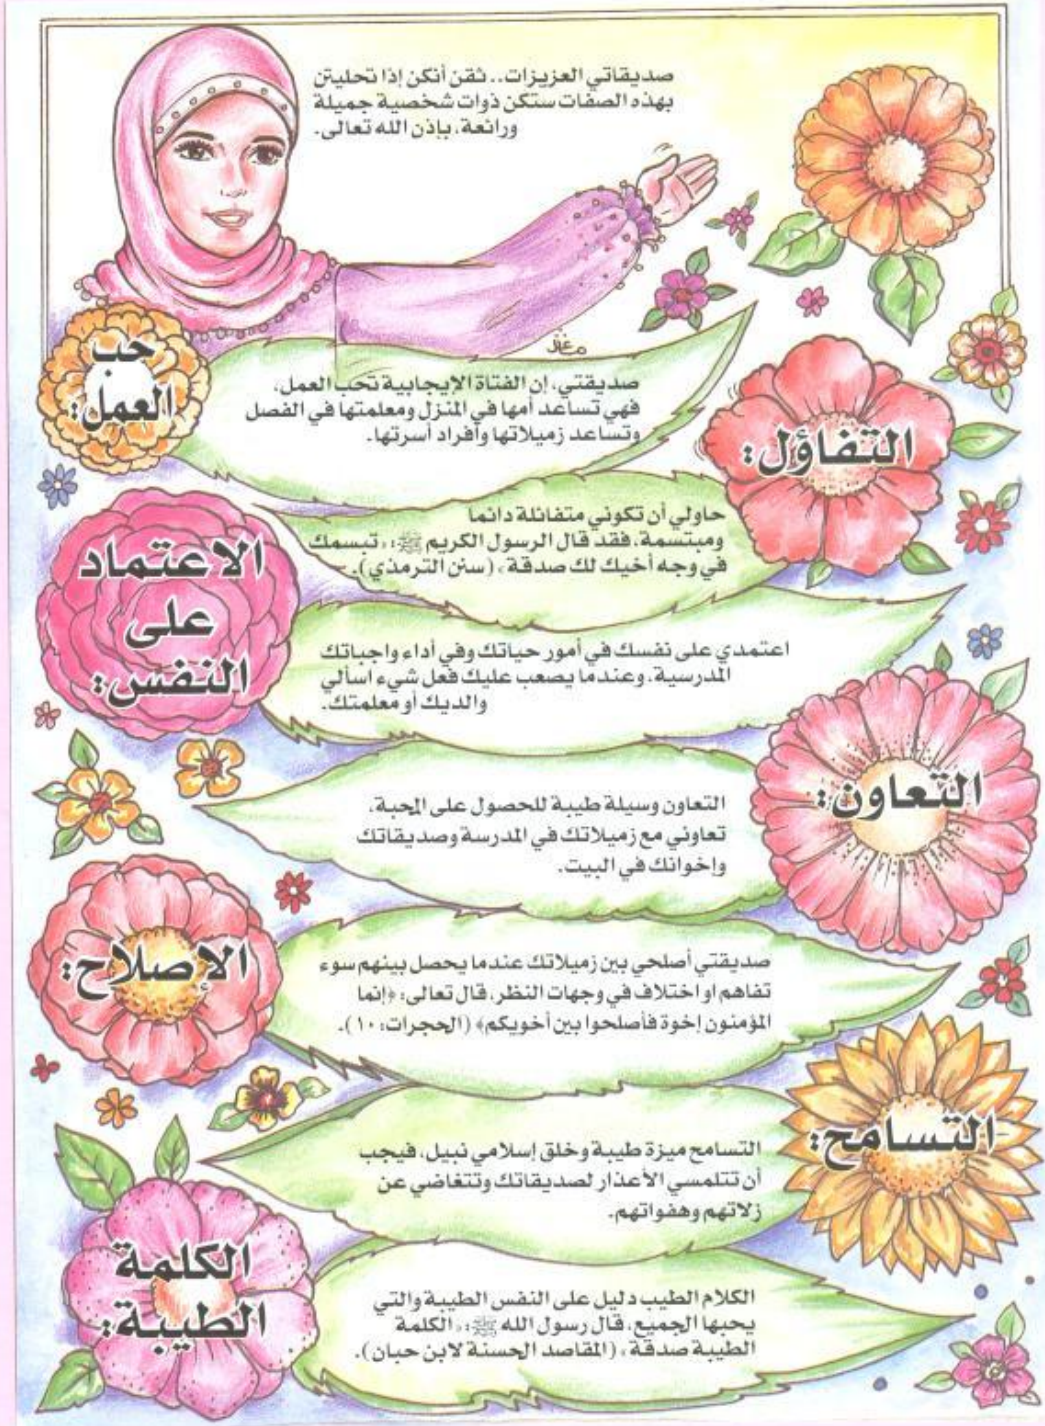 صديقاتي العزيزات.. ثقن أنكن إذا تحليتن
بهذه الصفات ستكن ذوات شخصية جميلة
ورائعة، بإذن الله تعالى.
حب
العمل:
صديقتي، إن الفتاة الإيجابية تحب العمل،
فهي تساعد أمها في المنزل ومعلمتها في الفصل
وتساعد زميلاتها وأفراد أسرتها.
التفاؤل:
حاولي أن تكوني متفائلة دائما
ومبتسمة، فقد قال الرسول الكريم ﷺ: «تبسمك
في وجه أخيك لك صدقة» (سنن الترمذي).
الاعتماد
على
النفس:
اعتمدي على نفسك في أمور حياتك وفي أداء واجباتك
المدرسية، وعندما يصعب عليك فعل شيء اسألي
والديك أو معلمتك.
التعاون:
التعاون وسيلة طيبة للحصول على المحبة،
تعاوني مع زميلاتك في المدرسة وصديقاتك
وإخوانك في البيت.
الإصلاح:
صديقتي أصلحي بين زميلاتك عندما يحصل بينهم سوء
تفاهم او اختلاف في وجهات النظر، قال تعالى: ﴿إنما
المؤمنون إخوة فأصلحوا بين أخويكم﴾ (الحجرات: ١٠).
التسامح:
التسامح ميزة طيبة وخلق إسلامي نبيل، فيجب
أن تتلمسي الأعذار لصديقاتك وتتغاضي عن
زلاتهم وهفواتهم.
الكلمة
الطيبة:
الكلام الطيب دليل على النفس الطيبة والتي
يحبها الجميع، قال رسول الله ﷺ: «الكلمة
الطيبة صدقة» (المقاصد الحسنة لابن حبان).